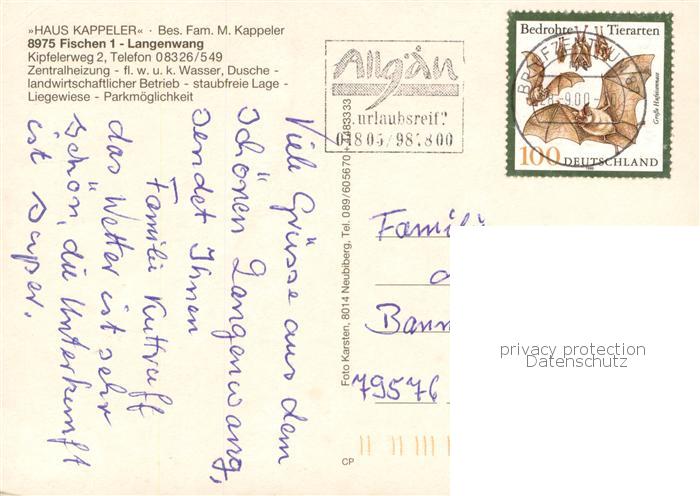 »HAUS KAPPELER« · Bes. Fam. M. Kappeler
8975 Fischen 1 - Langenwang
Kipfelerweg 2, Telefon 08326/549
Zentralheizung - fl. w. u. k. Wasser, Dusche -
landwirtschaftlicher Betrieb - staubfreie Lage -
Liegewiese - Parkmöglichkeit
Allgäu
urlaubsreif?
01805/987800
Bedrohte Tierarten
BRIEFZENTRUM
Große Hufeisennase
100 DEUTSCHLAND
Viele Grüsse aus dem
schönen Langenwang,
sendet Ihnen
Familie
das Wetter ist sehr
schön, die Unterkunft
ist super.
Foto Karsten, 8014 Neubiberg, Tel. 089/605670 +
CP
Famili
79576
privacy protection
Datenschutz